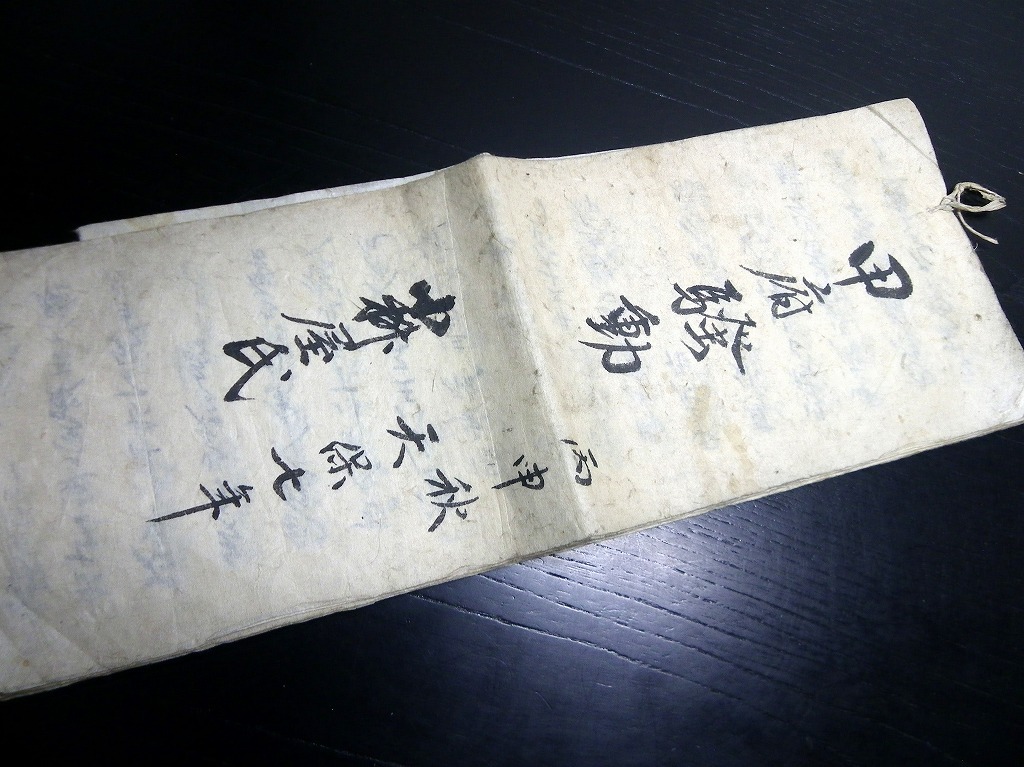 甲府騒動
丙申秋
天保七年
屋氏